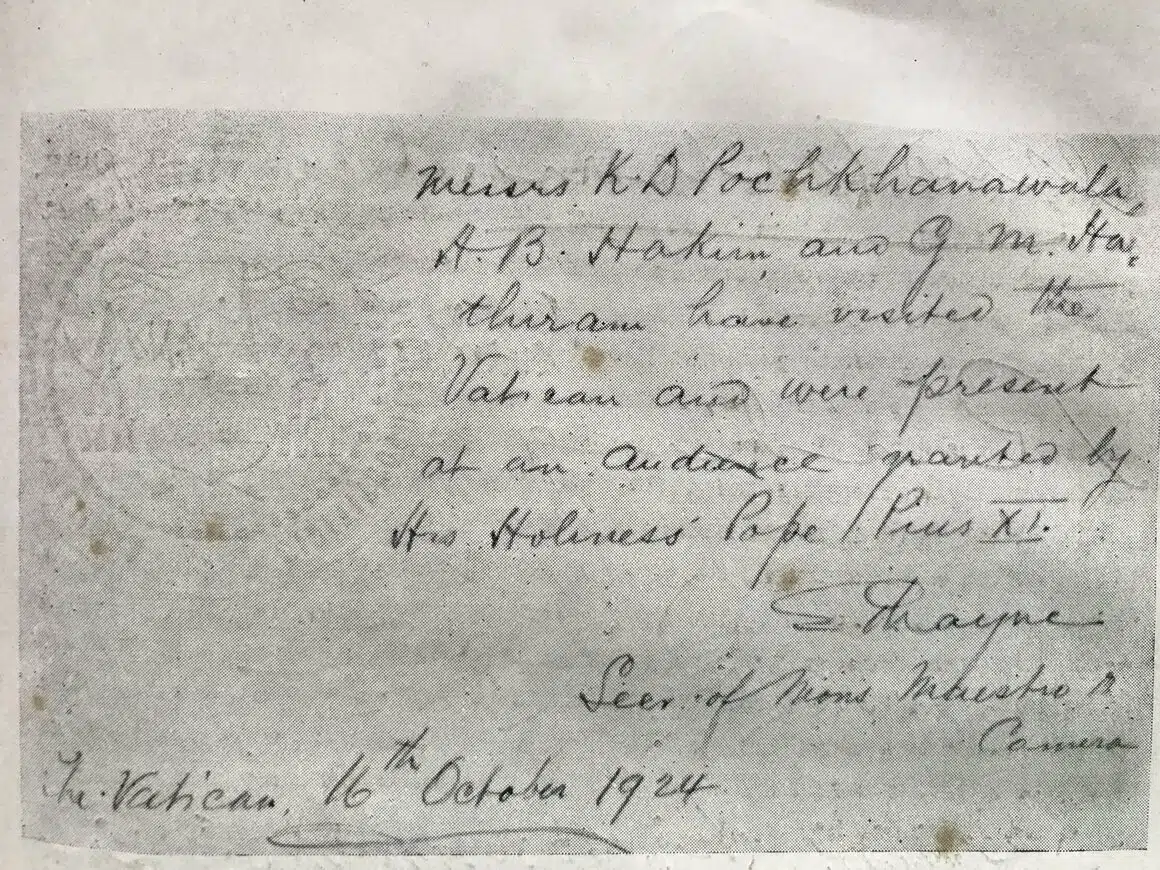 Messrs K. D Pochkhanawala,
A. B. Hakim, and G M. Ha,
thiram have visited the
Vatican and were present
at an audience granted by
His Holiness Pope Pius XI.
Secr. of Mons Maestro
Camera
The Vatican, 16th October 1924